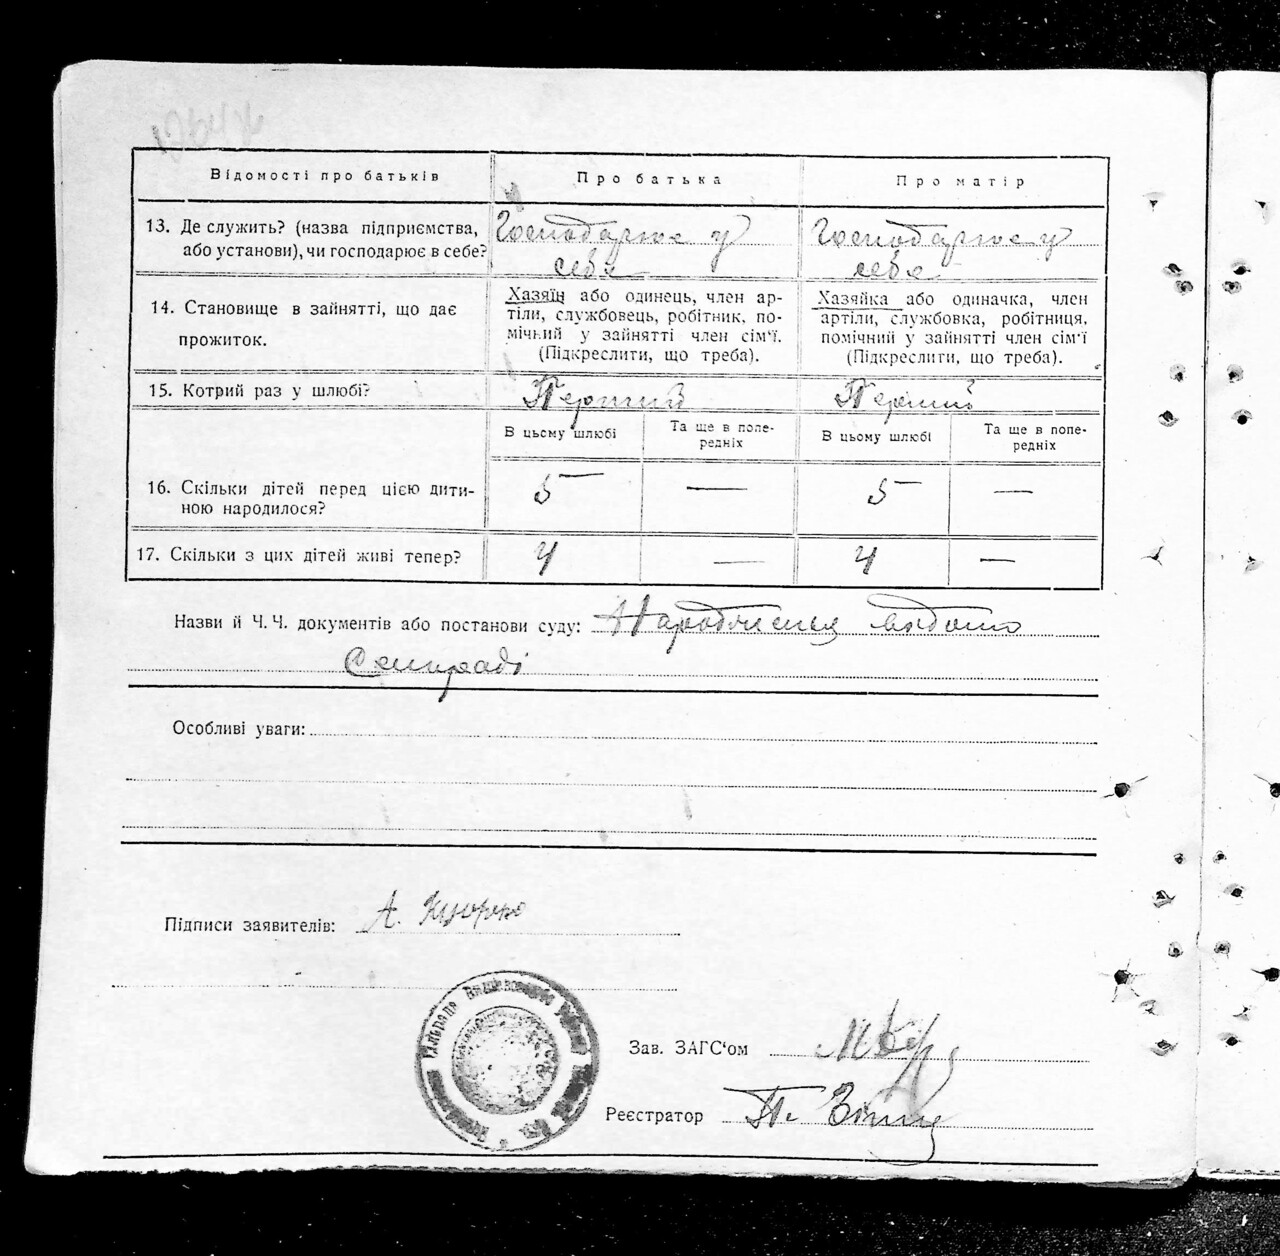 Відомості про батьків
Про батька
Про матір
13. Де служить? (назва підприємства,
або установи), чи господарює в себе?
Господарює у
себе
Господарює у
себе
14. Становище в зайнятті, що дає
прожиток.
Хазяїн або одинець, член ар-
тіли, службовець, робітник, по-
мічний у зайнятті член сім'ї.
(Підкреслити, що треба).
Хазяйка або одиначка, член
артіли, службовка, робітниця,
помічний у зайнятті член сім'ї
(Підкреслити, що треба).
15. Котрий раз у шлюбі?
Перший
Перший
В цьому шлюбі
Та ще в попе-
редніх
В цьому шлюбі
Та ще в попе-
редніх
16. Скільки дітей перед цією дити-
ною народилося?
5 — 5 —
17. Скільки з цих дітей живі тепер?
4 — 4 —
Назви й Ч. Ч. документів або постанови суду: Народження відомо
Сільраді
Особливі уваги:
Підписи заявителів: А.
Зав. ЗАГС'ом
Реєстратор П.